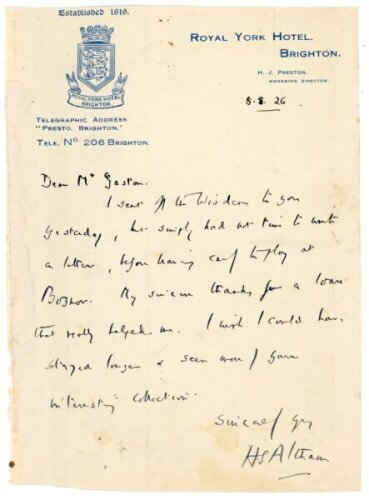 Established 1819.
ROYAL YORK HOTEL
BRIGHTON.
TELEGRAPHIC ADDRESS
"PRESTO, BRIGHTON."
TELE. No. 206 BRIGHTON.
ROYAL YORK HOTEL,
BRIGHTON.
H. J. PRESTON,
MANAGING DIRECTOR.
8.8.26
Dear Mr Gaston.
I sent off the Wisdens to you
yesterday, but simply had not time to write
a letter, before leaving early to play at
Bognor. My sincere thanks for a loan
that really helped me. I wish I could have
stayed longer & seen more of your
interesting collection.
Sincerely yrs
HSAltham